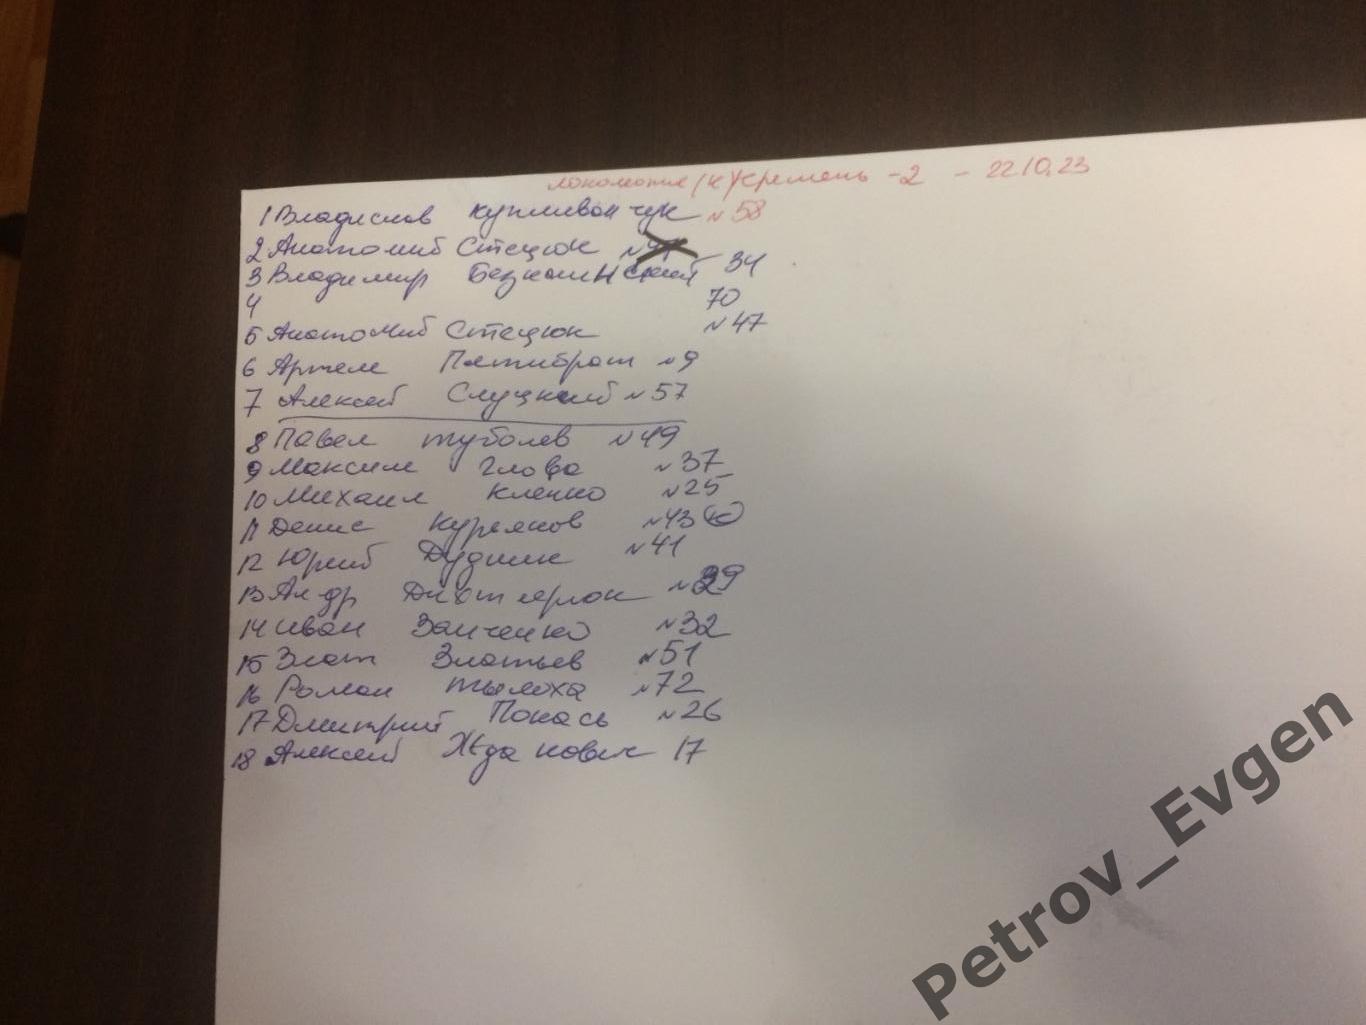 Локомотив (К) Кремень -2 - 22.10.23
1 Владислав Купливанчук №58
2 Анатолий Стецюк
3 Владимир 34
4 70
5 Анатолий Стецюк №47
6 Артем Пятибрат №9
7 Алексей Слуцкий №57
8 Павел туболев №49
9 Максим Глова №37
10 Михаил Кленко №25
11 Денис №43
12 Юрий Дудник №41
13 Ал-др
14 Иван Заиченко №32
15 Злат Златьев №51
16 Роман тылоха №72
17 Дмитрий Покась №26
18 Алексей Жданович 17
Petrov_Evgen